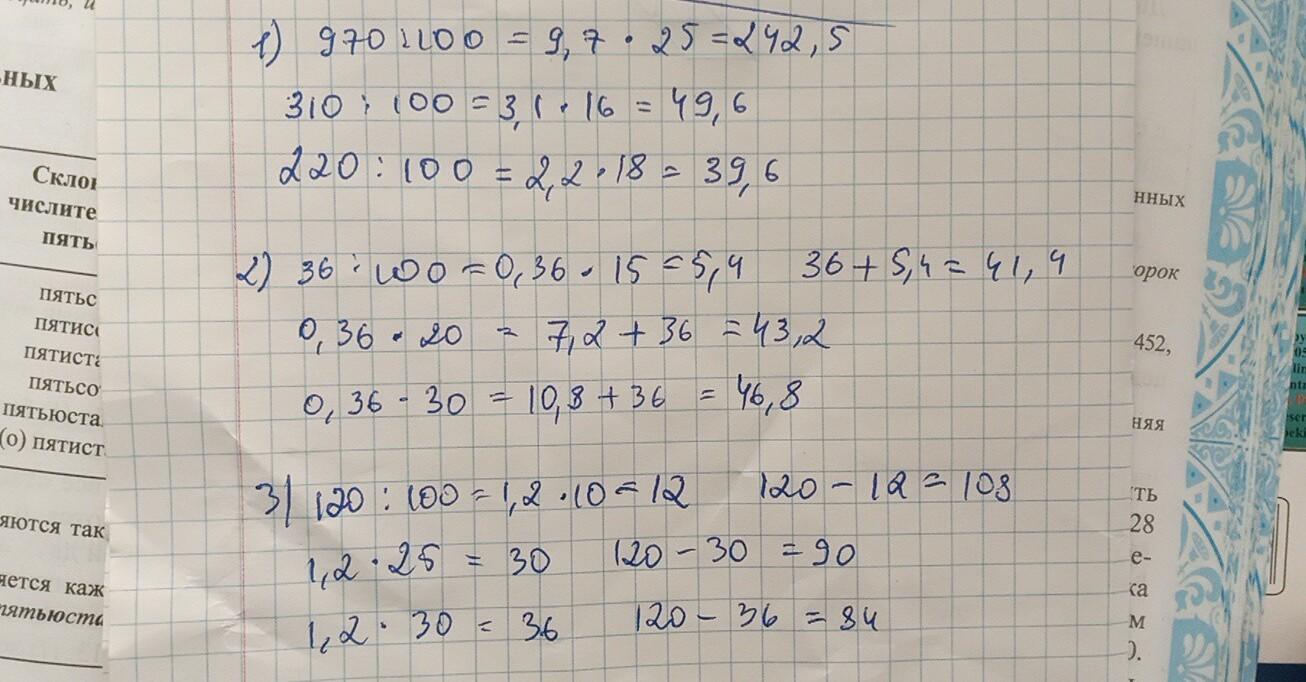 1) 970 : 100 = 9,7 · 25 = 242,5
310 : 100 = 3,1 · 16 = 49,6
220 : 100 = 2,2 · 18 = 39,6
2) 36 : 100 = 0,36 · 15 = 5,4 36 + 5,4 = 41,4
0,36 · 20 = 7,2 + 36 = 43,2
0,36 - 30 = 10,8 + 36 = 46,8
3) 120 : 100 = 1,2 · 10 = 12 120 - 12 = 108
1,2 · 25 = 30 120 - 30 = 90
1,2 · 30 = 36 120 - 36 = 84
ьных
Склон
числите
пять
пятьс
пятисо
пятиста
пятьсо
пятьюста
(о) пятист
яются так
яется каж
пятьюста
нных
орок
452,
няя
ть
28
е-
ка
м
).